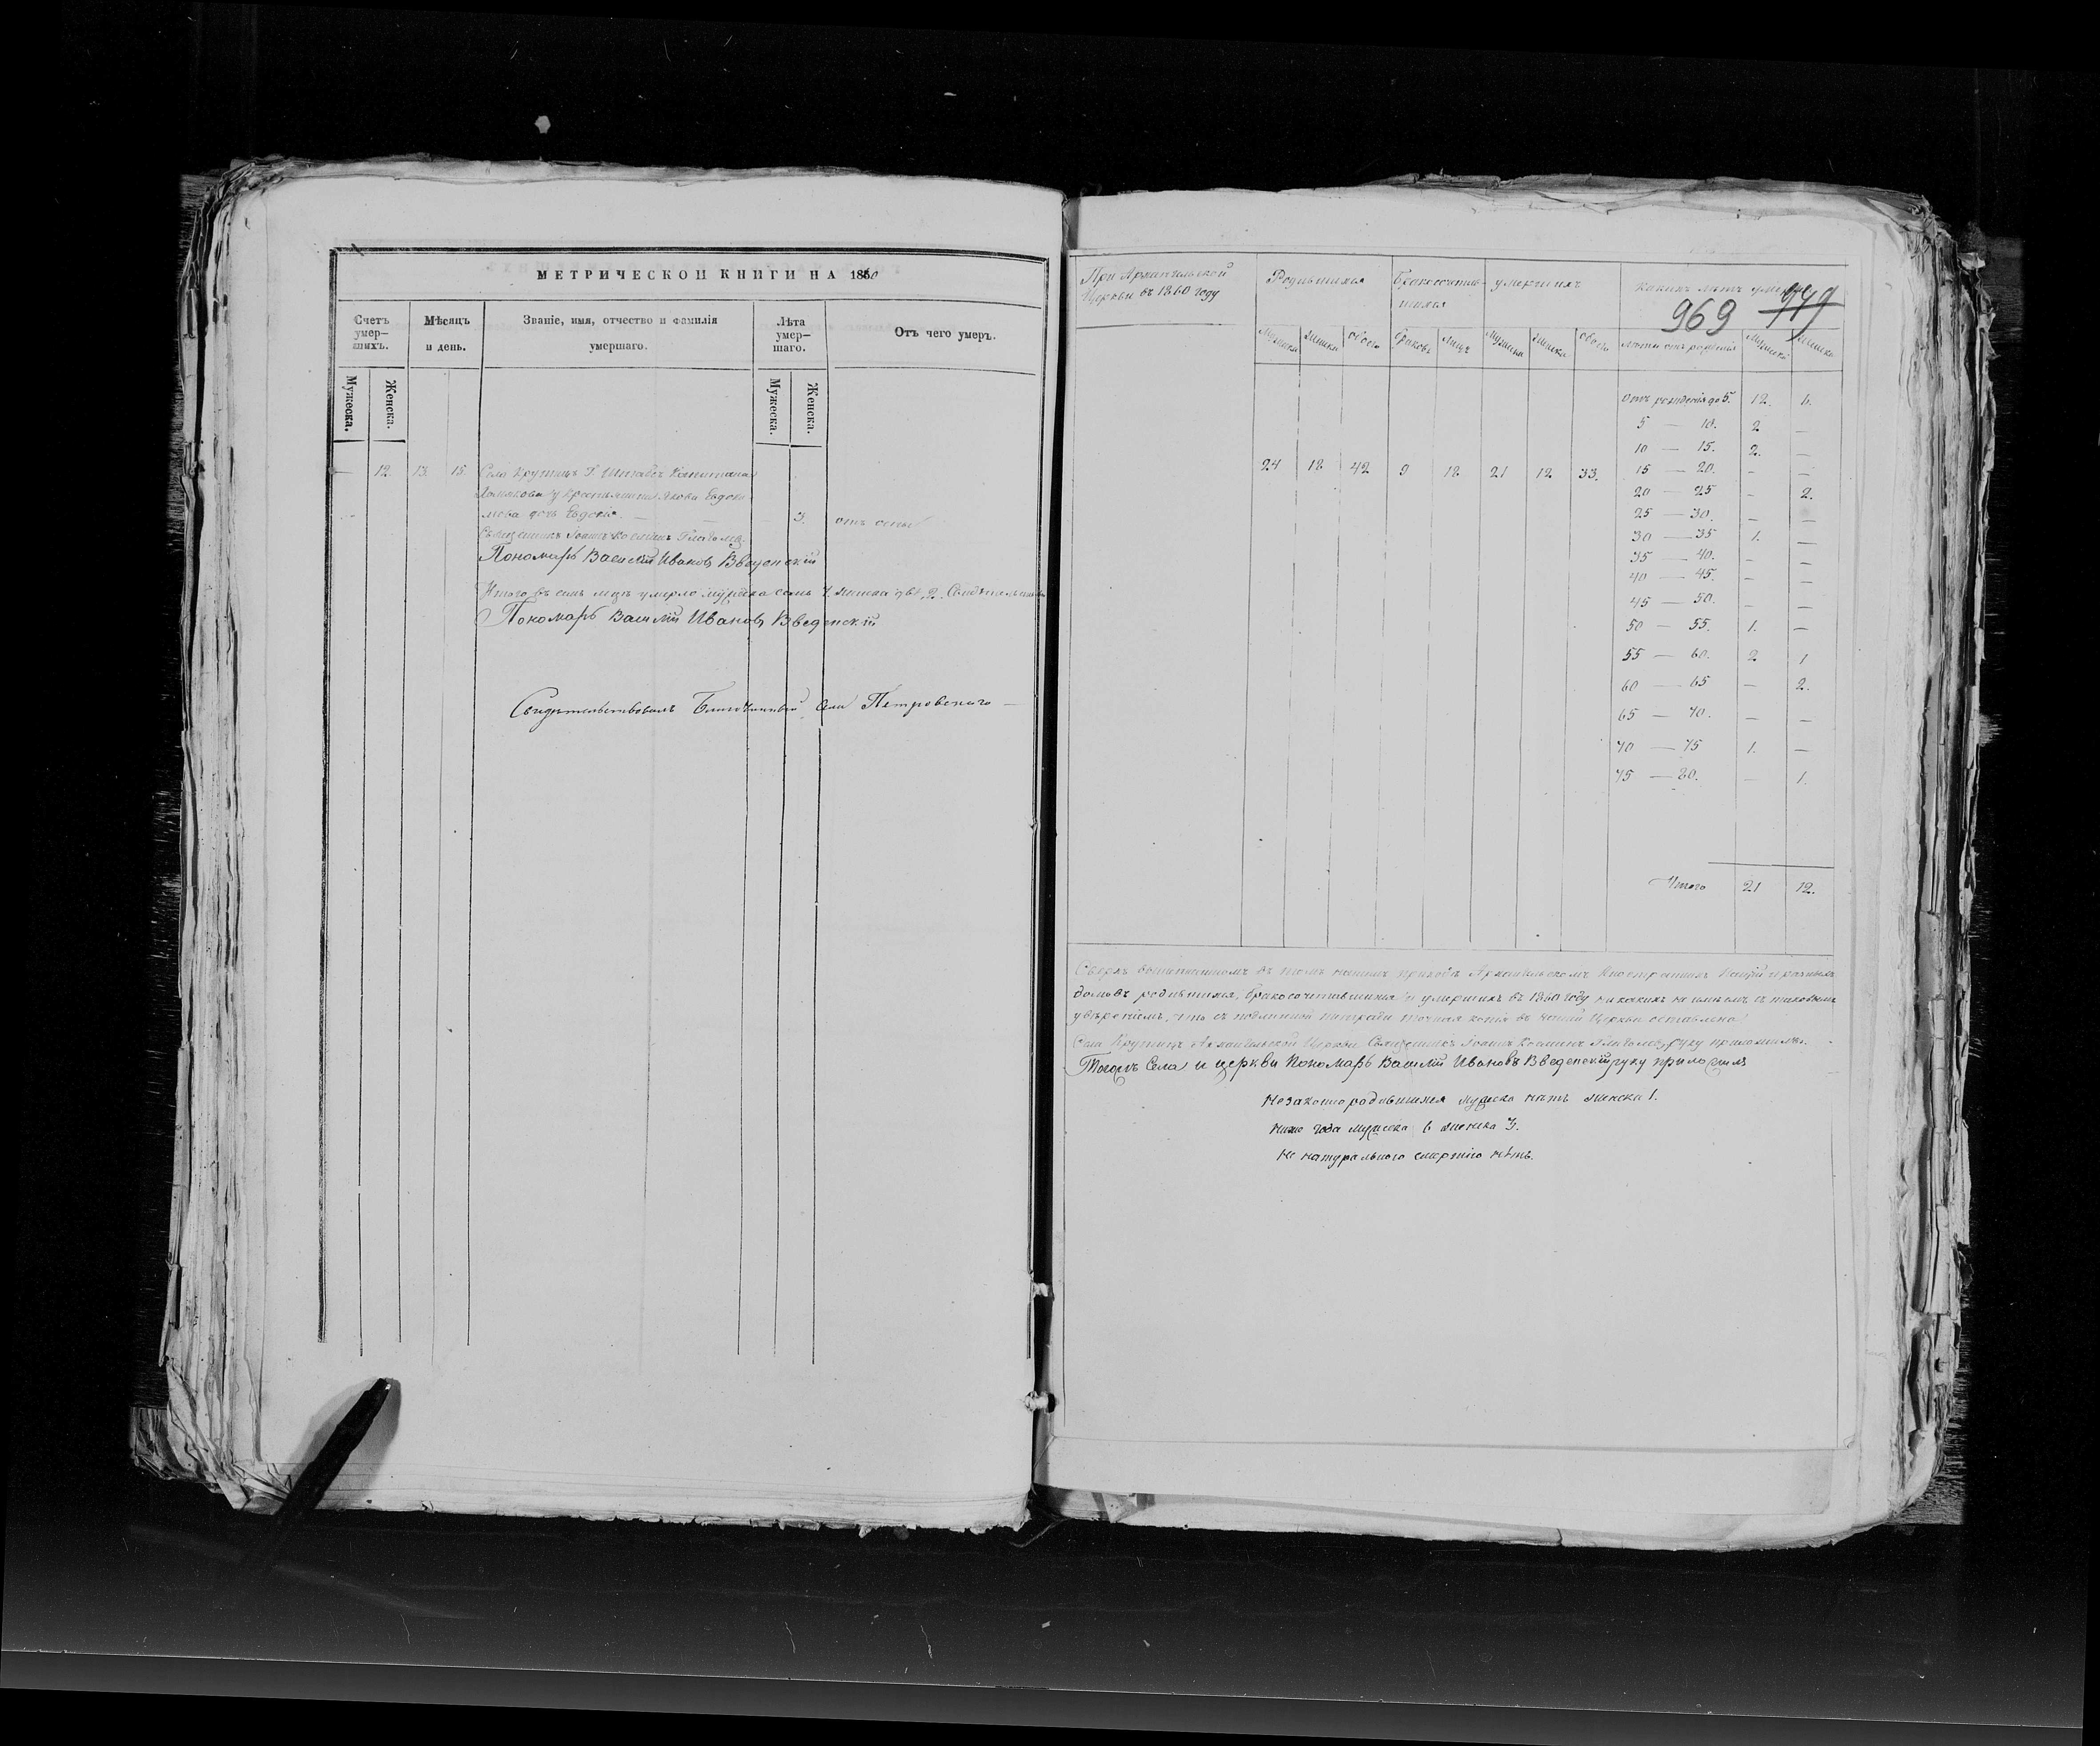 МЕТРИЧЕСКОЙ КНИГИ НА 1860
Счетъ умер-шихъ.
Мужеска.
Женска.
Мѣсяцъ и день.
Званіе, имя, отчество и фамилія умершаго.
Лѣта умер-шаго.
Мужеска.
Женска.
Отъ чего умеръ.
— 12. 13. 15.
Села Крутицъ Г. Штабсъ Капитана
у крестьянина Якова Евдоки-
мова дочь Евдокія — — 3. отъ оспы
Священникъ Іоаннъ Косминъ Глаголевъ.
Пономарь Василій Ивановъ Введенский
Итого въ семъ умерло мужеска семь 7. женска двѣ 2.
Пономарь Василій Ивановъ Введенскій
Свидѣтельствовалъ Благочинный Села Петровскаго —
969 979
При Архангельской
Церкви въ 1860 году
Родившихся
Мужеска
Женска
Обоего
Бракосочетав-
шихся
Браковъ
Лицъ
умершихъ
Мужеска
Женска
Обоего
Какихъ лѣтъ умерли
лѣты отъ рожденія
Мужеска
Женска
24 18 42 9 18 21 12 33.
Отъ рожденія до 5. 12. 6.
5 — 10. 2 —
10 — 15. 2. —
15 — 20. — —
20 — 25 — 2.
25 — 30. — —
30 — 35 1. —
35 — 40. — —
40 — 45. — —
45 — 50. — —
50 — 55. 1. —
55 — 60. 2 1
60 — 65 — 2.
65 — 70. — —
70 — 75 1. —
75 — 80. — 1.
Итого 21 12.
Сверхъ въ томъ приходѣ Архангельскомъ
домовъ родившихся, бракосочетавшихся и умершихъ въ 1860 году никакихъ не имѣемъ, съ таковымъ
увѣреніемъ, что съ подлинной тетради точная копія въ нашей Церкви оставлена
Села Крутицъ Архангельской Церкви Священникъ Іоаннъ Косминъ Глаголевъ руку приложилъ.
Тогожъ Села и церкви Пономарь Василій Ивановъ Введенскій руку приложилъ
Незаконнородившихся мужеска нѣтъ женска 1.
ниже года мужеска 6 женска 3.
не натуральною смертію нѣтъ.